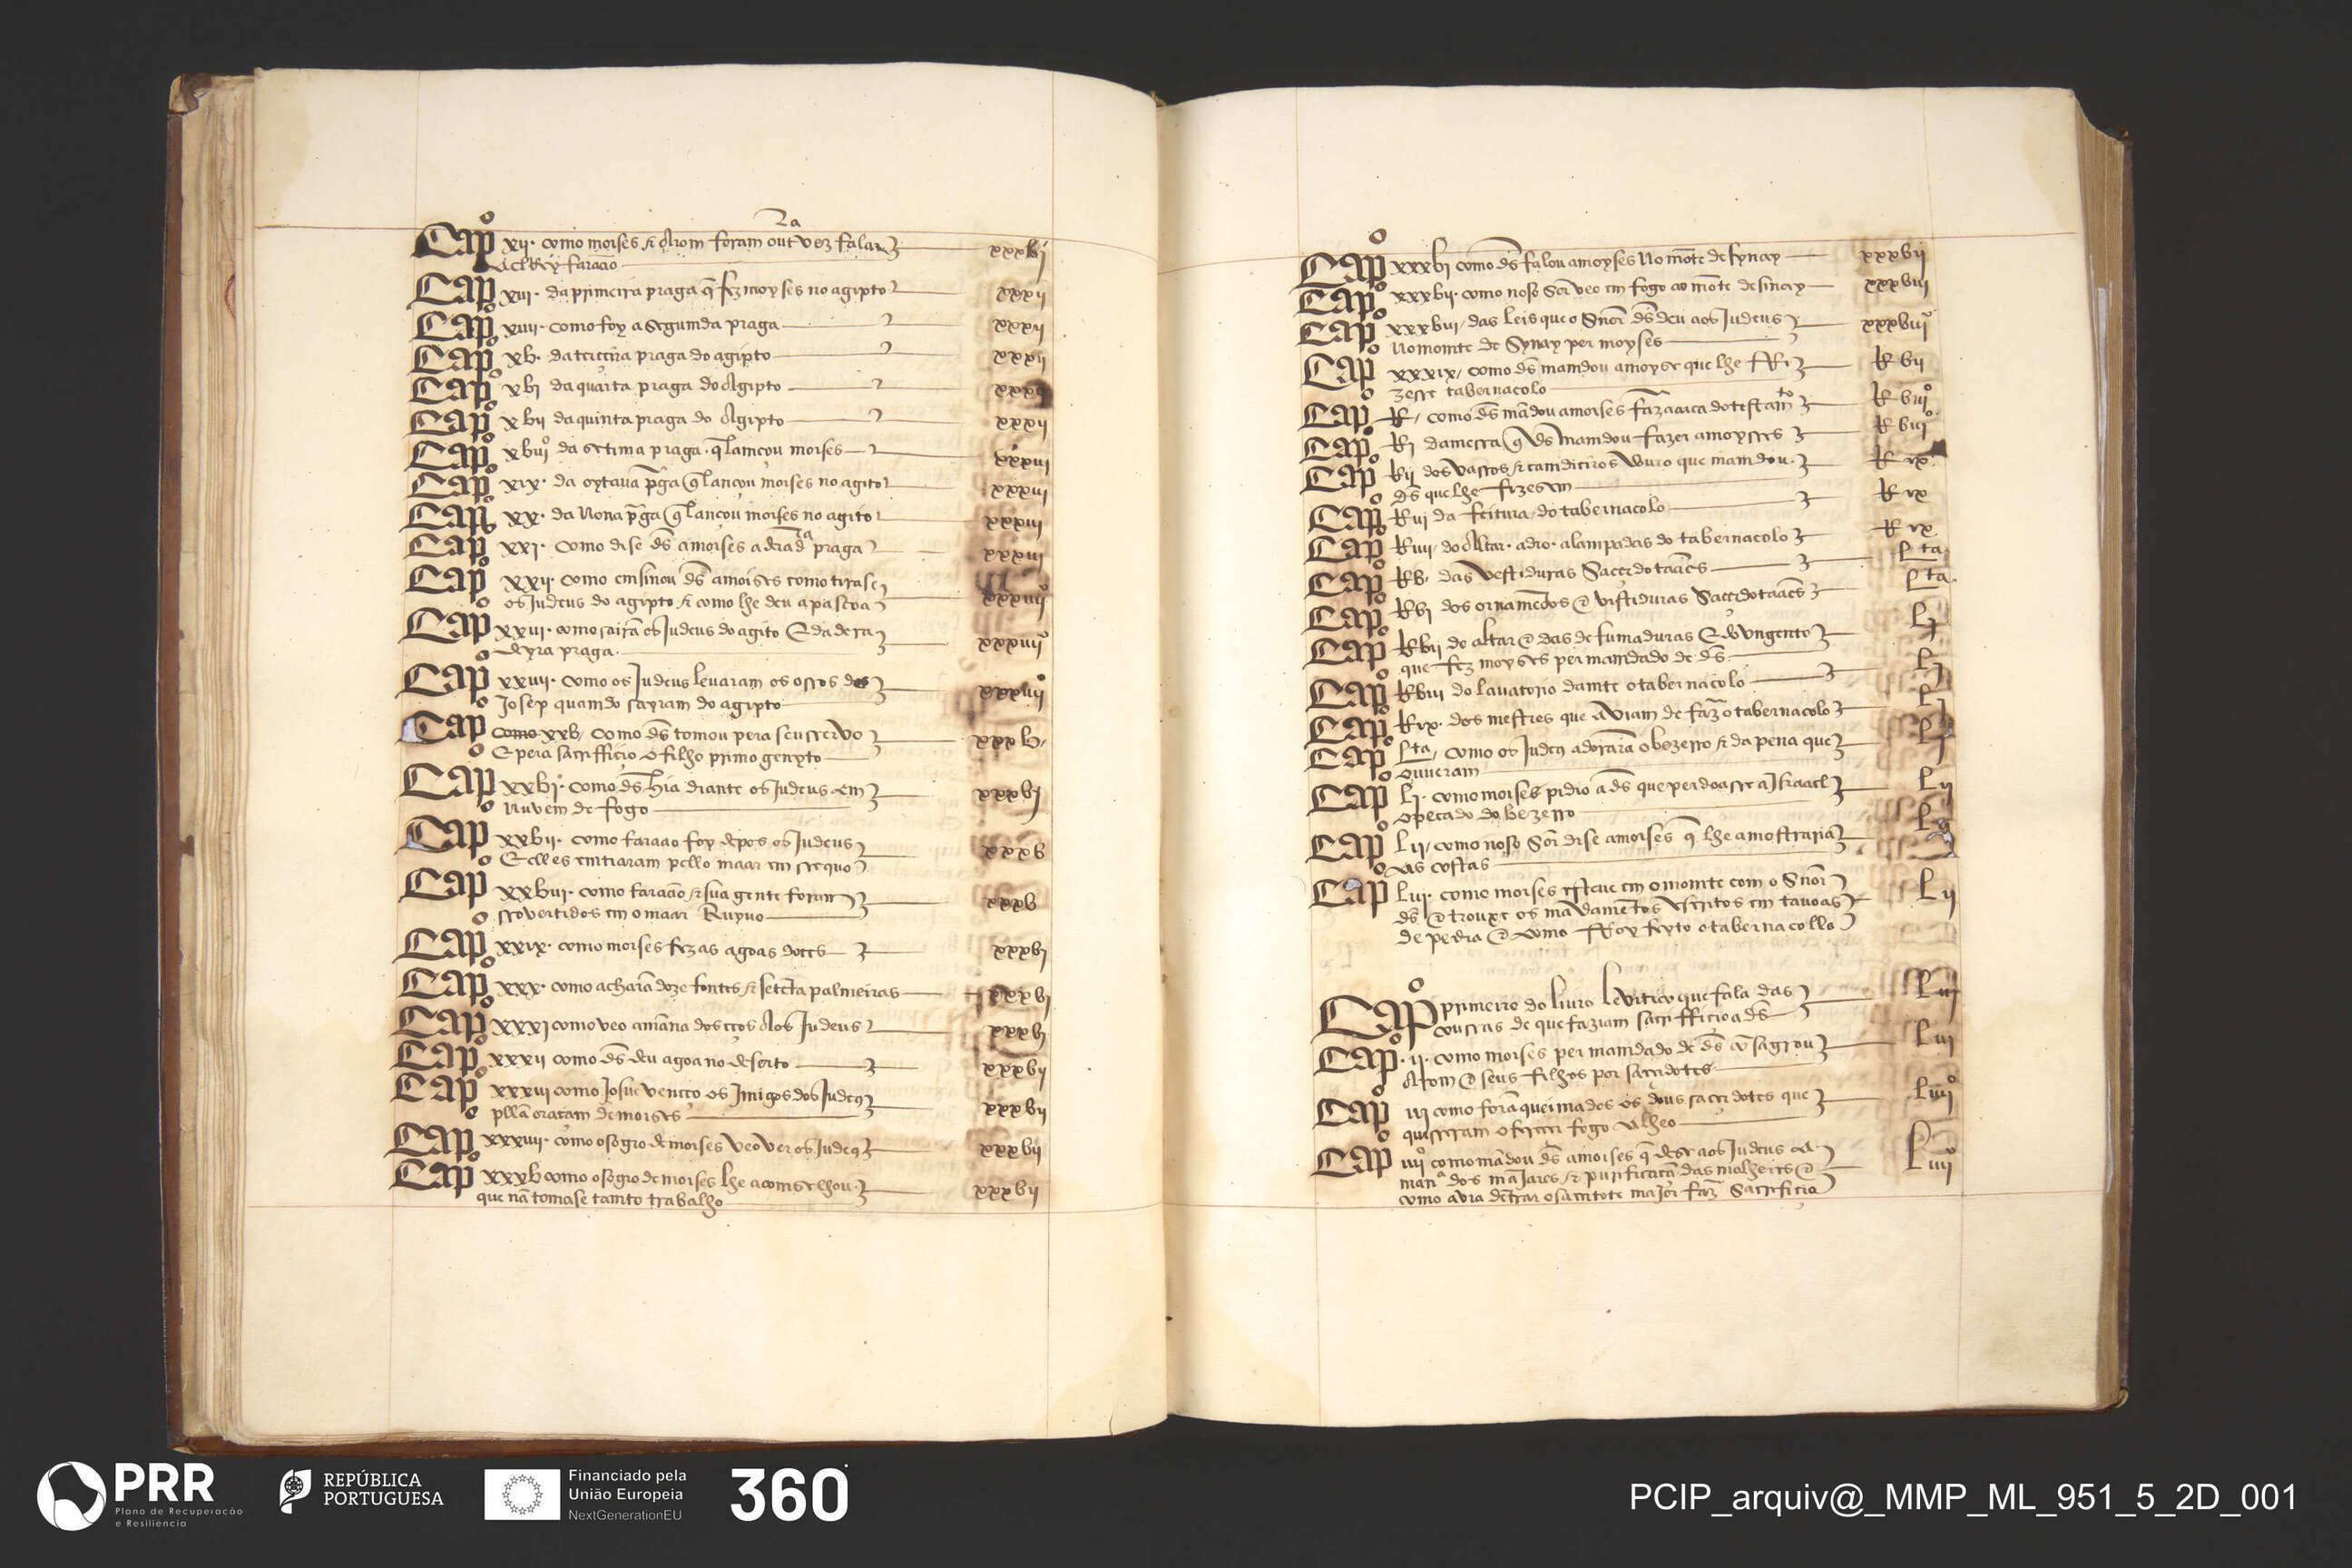 Capº xij. como moises & Arom foram outra vez falar xxxbj
A elRey faraão
Capº xiij. da primeira praga q̃ fez moyses no agipto xxxij
Capº xiiij. como foy a segumda praga xxxij
Capº xb. da terceira praga do agipto xxxij
Capº xbj da quarta praga do Agipto
Capº xbij da quinta praga do Agipto xxxij
Capº xbiijº da setima praga. q̃ lamçou moises xxxiij
Capº xix. da oytaua pᵃga q̃ lançou moises no agito xxxiij
Capº xx. da nona pᵃga q̃ lançou moises no agito xxxiij
Capº xxj. como dise ds̃ amoises a praga xxxiij
Capº xxij. como emsinou ds̃ amoises como tirase xxxiiijº
os Judeus do agipto & como lhe deu a pascoa
Capº xxiij. como sairã os Judeus do agito E da dera xxxiiijº
deyra praga.
Capº xxiiij. como os Judeus levaram os ossos de xxxiiijº
Josep quamdo sayram do agipto
Capº como xxb, como ds̃ tomou pera seu servo xxxb.
E pera sacrifficio o filho primogenyto
Capº xxbj. como ds̃ hia diante os Judeus em xxxbj
nuvem de fogo
Capº xxbij. como faraao foy depos os Judeus xxxb
E elles emtraram pello maar em sequo
Capº xxbiij. como faraão & sua gente foram xxxb
sovertidos em o maar Ruyuo
Capº xxix. como moises fez as agoas doces xxxbj
Capº xxx. como acharã doze fontes & setẽta palmeiras xxxbj
Capº xxxj como veo amãna dos ceos Aos Judeus xxxbj
Capº xxxij como ds̃ deu agoa no deserto xxxbij
Capº xxxiij como Josue venceo os Imigos dos Judeꝯ xxxbij
pella oraçam de moises
Capº xxxiiij. como o sogro de moises veo ver os Judeꝯ xxxbij
Capº xxxb como o sogro de moises lhe acomselhou. xxxbij
que nã tomase tamto trabalho
Capº xxxbj como ds̃ falou amoyses no mõte de synay xxxbij
Capº xxxbij. como noso Sõr veo em fogo ao mõte de sinay xxxbiij
Capº xxxbiij, das leis que o Snõr ds̃ deu aos Judeus xxxbiijº
no momte de Synay per moyses
Capº xxxix, como ds̃ mamdou amoyse que lhe ffi R bij
zesse tabernacolo
Capº R, como ds̃ mãdou amoises faz̃ a arca do testamto R biijº
Capº Rj da messa q̃ ds̃ mamdou fazer amoyses R biijº
Capº Rij dos vassos & camdieiros douro que mamdou. R ix.
ds̃ que lhe fizesem
Capº Riij da feitura do tabernacolo R ix
Capº Riiij, do Altar. adro. alampadas do tabernacolo R ix
Capº Rb. das vestiduras Sacerdotaães Lta
Capº Rbj dos ornamẽtos & vistiduras Sacerdotaães Lta.
Capº Rbij do altar & das defumaduras E do ungento Lj
que fez moyses per mamdado de ds̃
Capº Rbiij do lauatorio damte o tabernacolo Lj
Capº Rix. dos mestres que aviam de faz̃ o tabernacolo Lj
Capº Lta, como os Judeꝯ adorarã o bezerro & da pena que Lj
ouveram
Capº Lj. como moises pidio a ds̃ que perdoasse a Israael Lij
o pecado do bezerro
Capº Lij, como noso Sõr dise amoises q̃ lhe amostraria
as costas
Capº Liij. como moises esteue em o momte com o Snõr Lij
ds̃ & trouxe os mãdamẽtos escritos em tauoas
de pedra & como ffoy feyto o tabernacollo
Capº primeiro do liuro levitico que fala das Liij
coussas de que faziam sacrifficio a ds̃
Capº. ij. como moises per mamdado de ds̃ cõsagrou Liij
Arom & seus filhos por sacerdotes
Capº iij como forã queimados os dous sacerdotes que Liiijº
quiseram oferecer fogo alheo
Capº iiijº como mãdou ds̃ amoises q̃ dese aos Judeus a. Liiijº
manrᵃ dos mãjares, & purificaçã das molheres &
como avia dẽtrar o sacerdote major faz̃ sacrificio
PRR
Plano de Recuperação
e Resiliência
REPÚBLICA
PORTUGUESA
Financiado pela
União Europeia
NextGenerationEU
360
PCIP_arquiv@_MMP_ML_951_5_2D_001